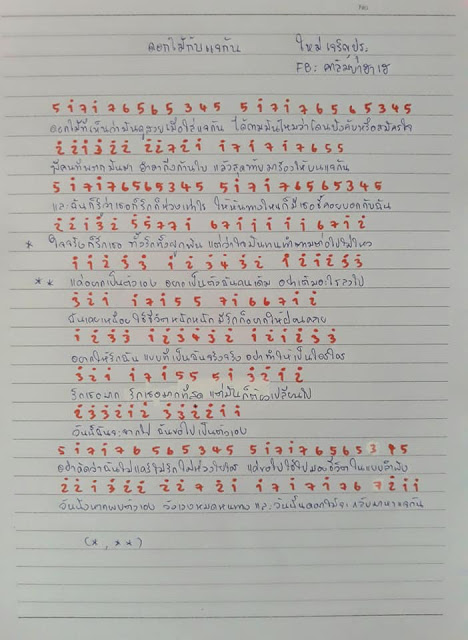 ดอกไม้กับแจกัน ใหม่ เจริญปุระ
FB:
5 i 7 i 7 6 5 6 5 3 4 5 5 i 7 i 7 6 5 6 5 3 4 5
ดอกไม้ที่เห็นว่ามันดูสวยเมื่อใส่แจกัน ได้ถามมันไหมว่าโดนบังคับหรือสมัครใจ
2̇ 2̇ i 3̇ 2̇ 2̇ 2̇ 2̇ 7 2̇ i i 7 i 7 i 7 6 5 5
มีคนที่พรากมันมา ถึงก้านใบ แล้วสุดท้ายมาร้องให้บนแจกัน
5 i 7 i 7 6 5 6 5 3 4 5 5 i 7 i 7 6 5 6 5 3 4 5
และฉันก็รู้ว่าเธอก็รักก็ห่วงเท่าไร ให้หันทางไหนก็มีเธอที่คอยบอกกับฉัน
2̇ 2̇ i 3̇ 2̇ 5 5 7 7 i 6 7 i i i i i 6 7 i 2̇
* ใจจริงก็รักเธอ ทั้งรักทั้งผูกพัน แต่ว่าใจมันทนทำตามต่อไปไม่ไหว
i i 2̇ 3̇ 3̇ i 2̇ 3̇ 4̇ 3̇ 2̇ i 2̇ i 2̇ 3̇ 3̇
** แค่อยากเป็นตัวเอง อยากเป็นตัวฉันคนเดิม อย่าเติมอะไรลงไป
3̇ 2̇ i i 7 i 5 5 7 i 6 6 7 i 2̇
ฉันเคยเหนื่อย ใช้ชีวิตหนักหนัก มีรักก็อยากให้ผ่อนคลาย
i 2̇ 3̇ 3̇ i 2̇ 3̇ 4̇ 3̇ 2̇ i 2̇ i 2̇ 3̇ 3̇
อยากให้รักฉัน แบบที่เป็นฉันจริงจริง อย่าทำให้เป็นใครใคร
3̇ 2̇ i i 7 i 5 5 5 i 3̇ 2̇ i 2̇
รักเธอมาก รักเธอมากที่สุด แต่มันก็ต้องเปลี่ยนไป
2̇ 3̇ 3̇ 2̇ i 2̇ 3̇ 3̇ 2̇ 2̇ i i
วันนี้ฉันจะจากไป ฉันขอไปเป็นตัวเอง
5 i 7 i 7 6 5 6 5 3 4 5 5 i 7 i 7 6 5 6 5 3 4 5
อย่าคิดว่าฉันไม่แคร์ไม่รักไม่ห่วงใยเธอ แค่ขอไปใช้ไปมองชีวิตในแบบลำพัง
2̇ 2̇ i 3̇ 2̇ 2̇ 2̇ 2̇ 7 2̇ i i 7 i 7 i 7 6 7 2̇ i i
วันนึงหากพบตัวเอง ลังเลหมดหนทาง และวันนั้นดอกไม้จะกลับมาหาแจกัน
(*, **)